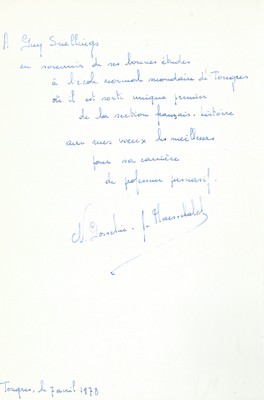 A Guy Snellings
en souvenir de ses bonnes études
à l'école normale secondaire de Tongres
où il est sorti unique premier
de la section français-histoire
avec mes voeux les meilleurs
pour sa carrière
de professeur
N. Gosselin - J.
Tongres, le 7 avril 1978